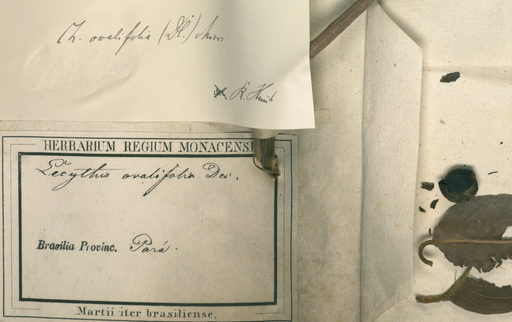 Ch. ovalifolia (DC.) Miers
R. Knuth
HERBARIUM REGIUM MONACENSE
Lecythis ovalifolia DC.
Brasilia Provinc. Pará.
Martii iter brasiliense.